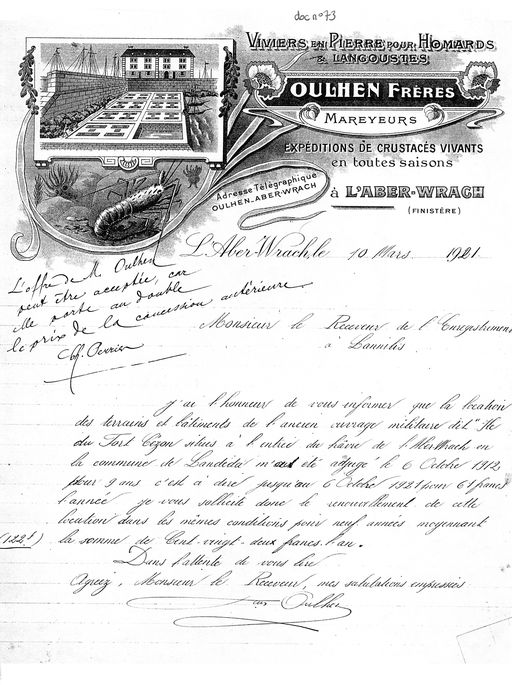 doc n° 73
VIVIERS EN PIERRE POUR HOMARDS
& LANGOUSTES
OULHEN FRÈRES
MAREYEURS
EXPÉDITIONS DE CRUSTACÉS VIVANTS
en toutes saisons
Adresse Télégraphique
OULHEN-ABER-WRACH
à L'ABER-WRACH
(FINISTÈRE)
L'Aber-Wrach, le 10 Mars 1921
L'offre de M. Oulhen
peut être acceptée, car
elle porte au double
le prix de la concession antérieure.
Monsieur le Receveur de l'Enregistrement
à Lannilis
J'ai l'honneur de vous informer que la location
des terrains et bâtiments de l'ancien ouvrage militaire dit "Ile
du Fort Cézon situés à l'entrée du hâvre de l'AberWrach en
la commune de Landéda m'a été adjugé le 6 Octobre 1912,
pour 9 ans c'est à dire jusqu'au 6 Octobre 1921 pour 61 francs
l'année je vous sollicite donc le renouvellement de cette
location dans les mêmes conditions pour neuf années moyennant
(122 f) la somme de Cent-vingt-deux francs l'an.
Dans l'attente de vous lire
Agréez, Monsieur le Receveur, mes salutations empressées
Oulhen